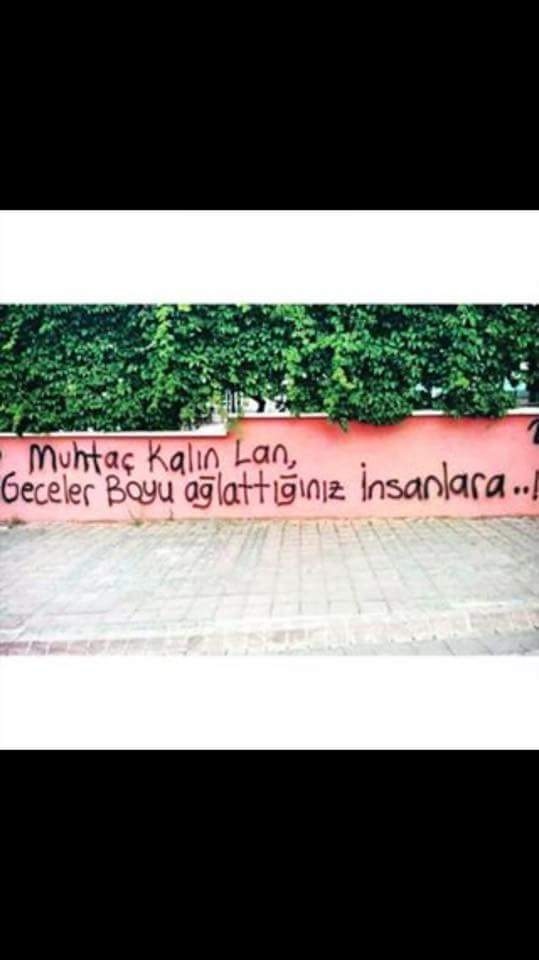 Muhtaç Kalın Lan,
Geceler Boyu ağlattığınız İnsanlara..!